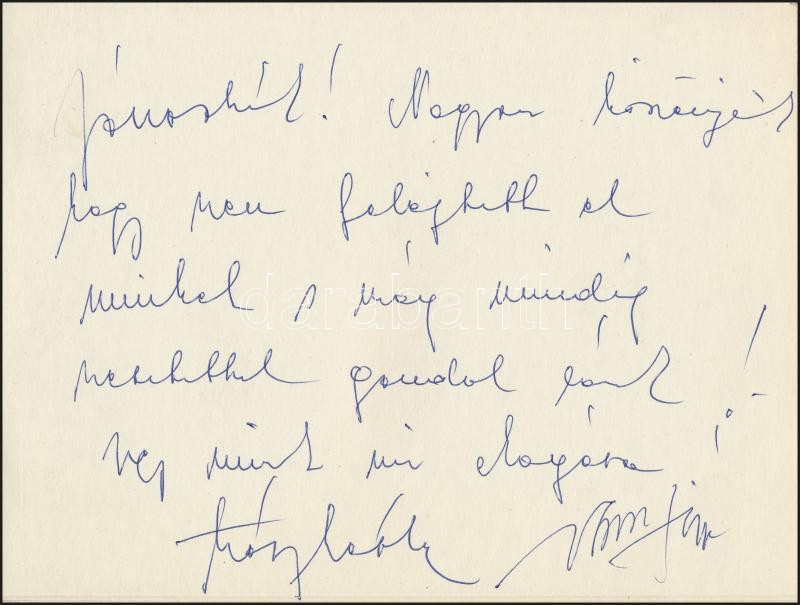 Jánoskát! Nagyon köszönjük
hogy nem felejtett el
minket s még mindig
szeretettel gondol ránk!
úgy mint mi Magára!
darabanth